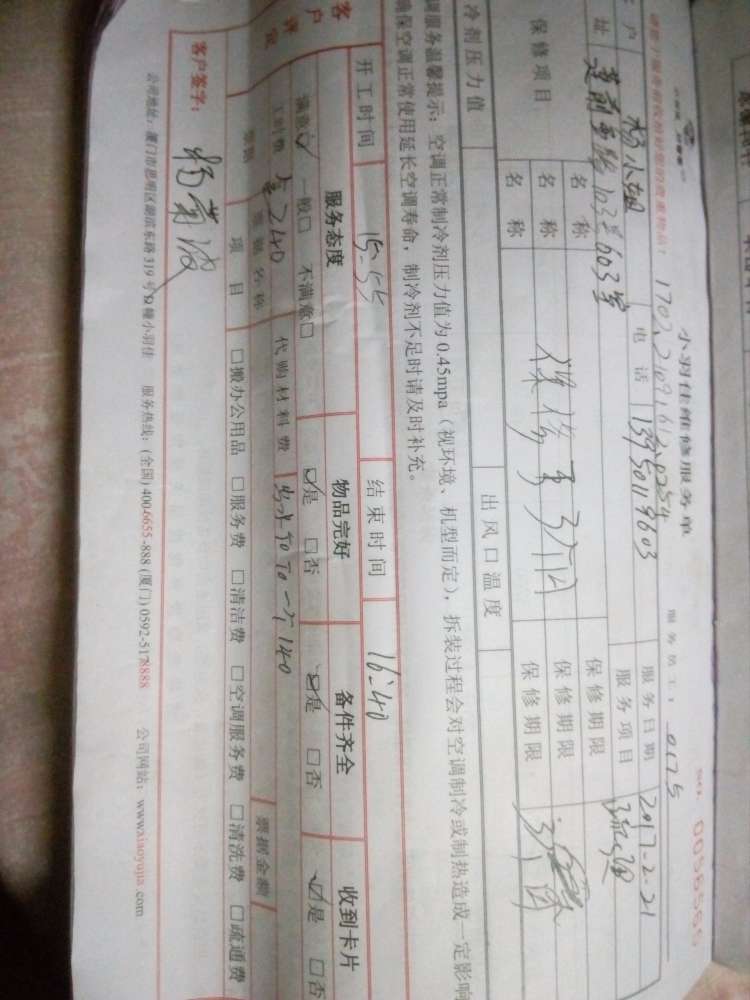 小羽佳维修服务单
No. 0056556
1702.21091612.0254
服务员工： 0175
户 杨小姐 电话 13950119603 服务日期 2017-2-21
址 莲前西路103号603室 服务项目
保修项目 名称 保修期限
名称 保修期限
名称 保修期限
冷剂压力值 出风口温度
调服务温馨提示：空调正常制冷剂压力值为0.45mpa（视环境、机型而定），拆装过程会对空调制冷或制热造成一定影响
确保空调正常使用延长空调寿命，制冷剂不足时请及时补充。
开工时间 15:55 结束时间 16:40
客户评定 服务态度 物品完好 备件齐全 收到卡片
满意☑ 一般□ 不满意□ ☑是 □否 ☑是 □否 ☑是 □否
工时费 240 代购材料费
票据 票据名称 票据金额
项目 □搬办公用品 □服务费 □清洁费 □空调服务费 □清洗费 □疏通费
客户签字： 杨菊波
公司地址：厦门市思明区湖滨东路319号D幢小羽佳 服务热线：(全国) 4006655-888 (厦门) 0592-5178888 公司网站：www.xiaoyujia.com